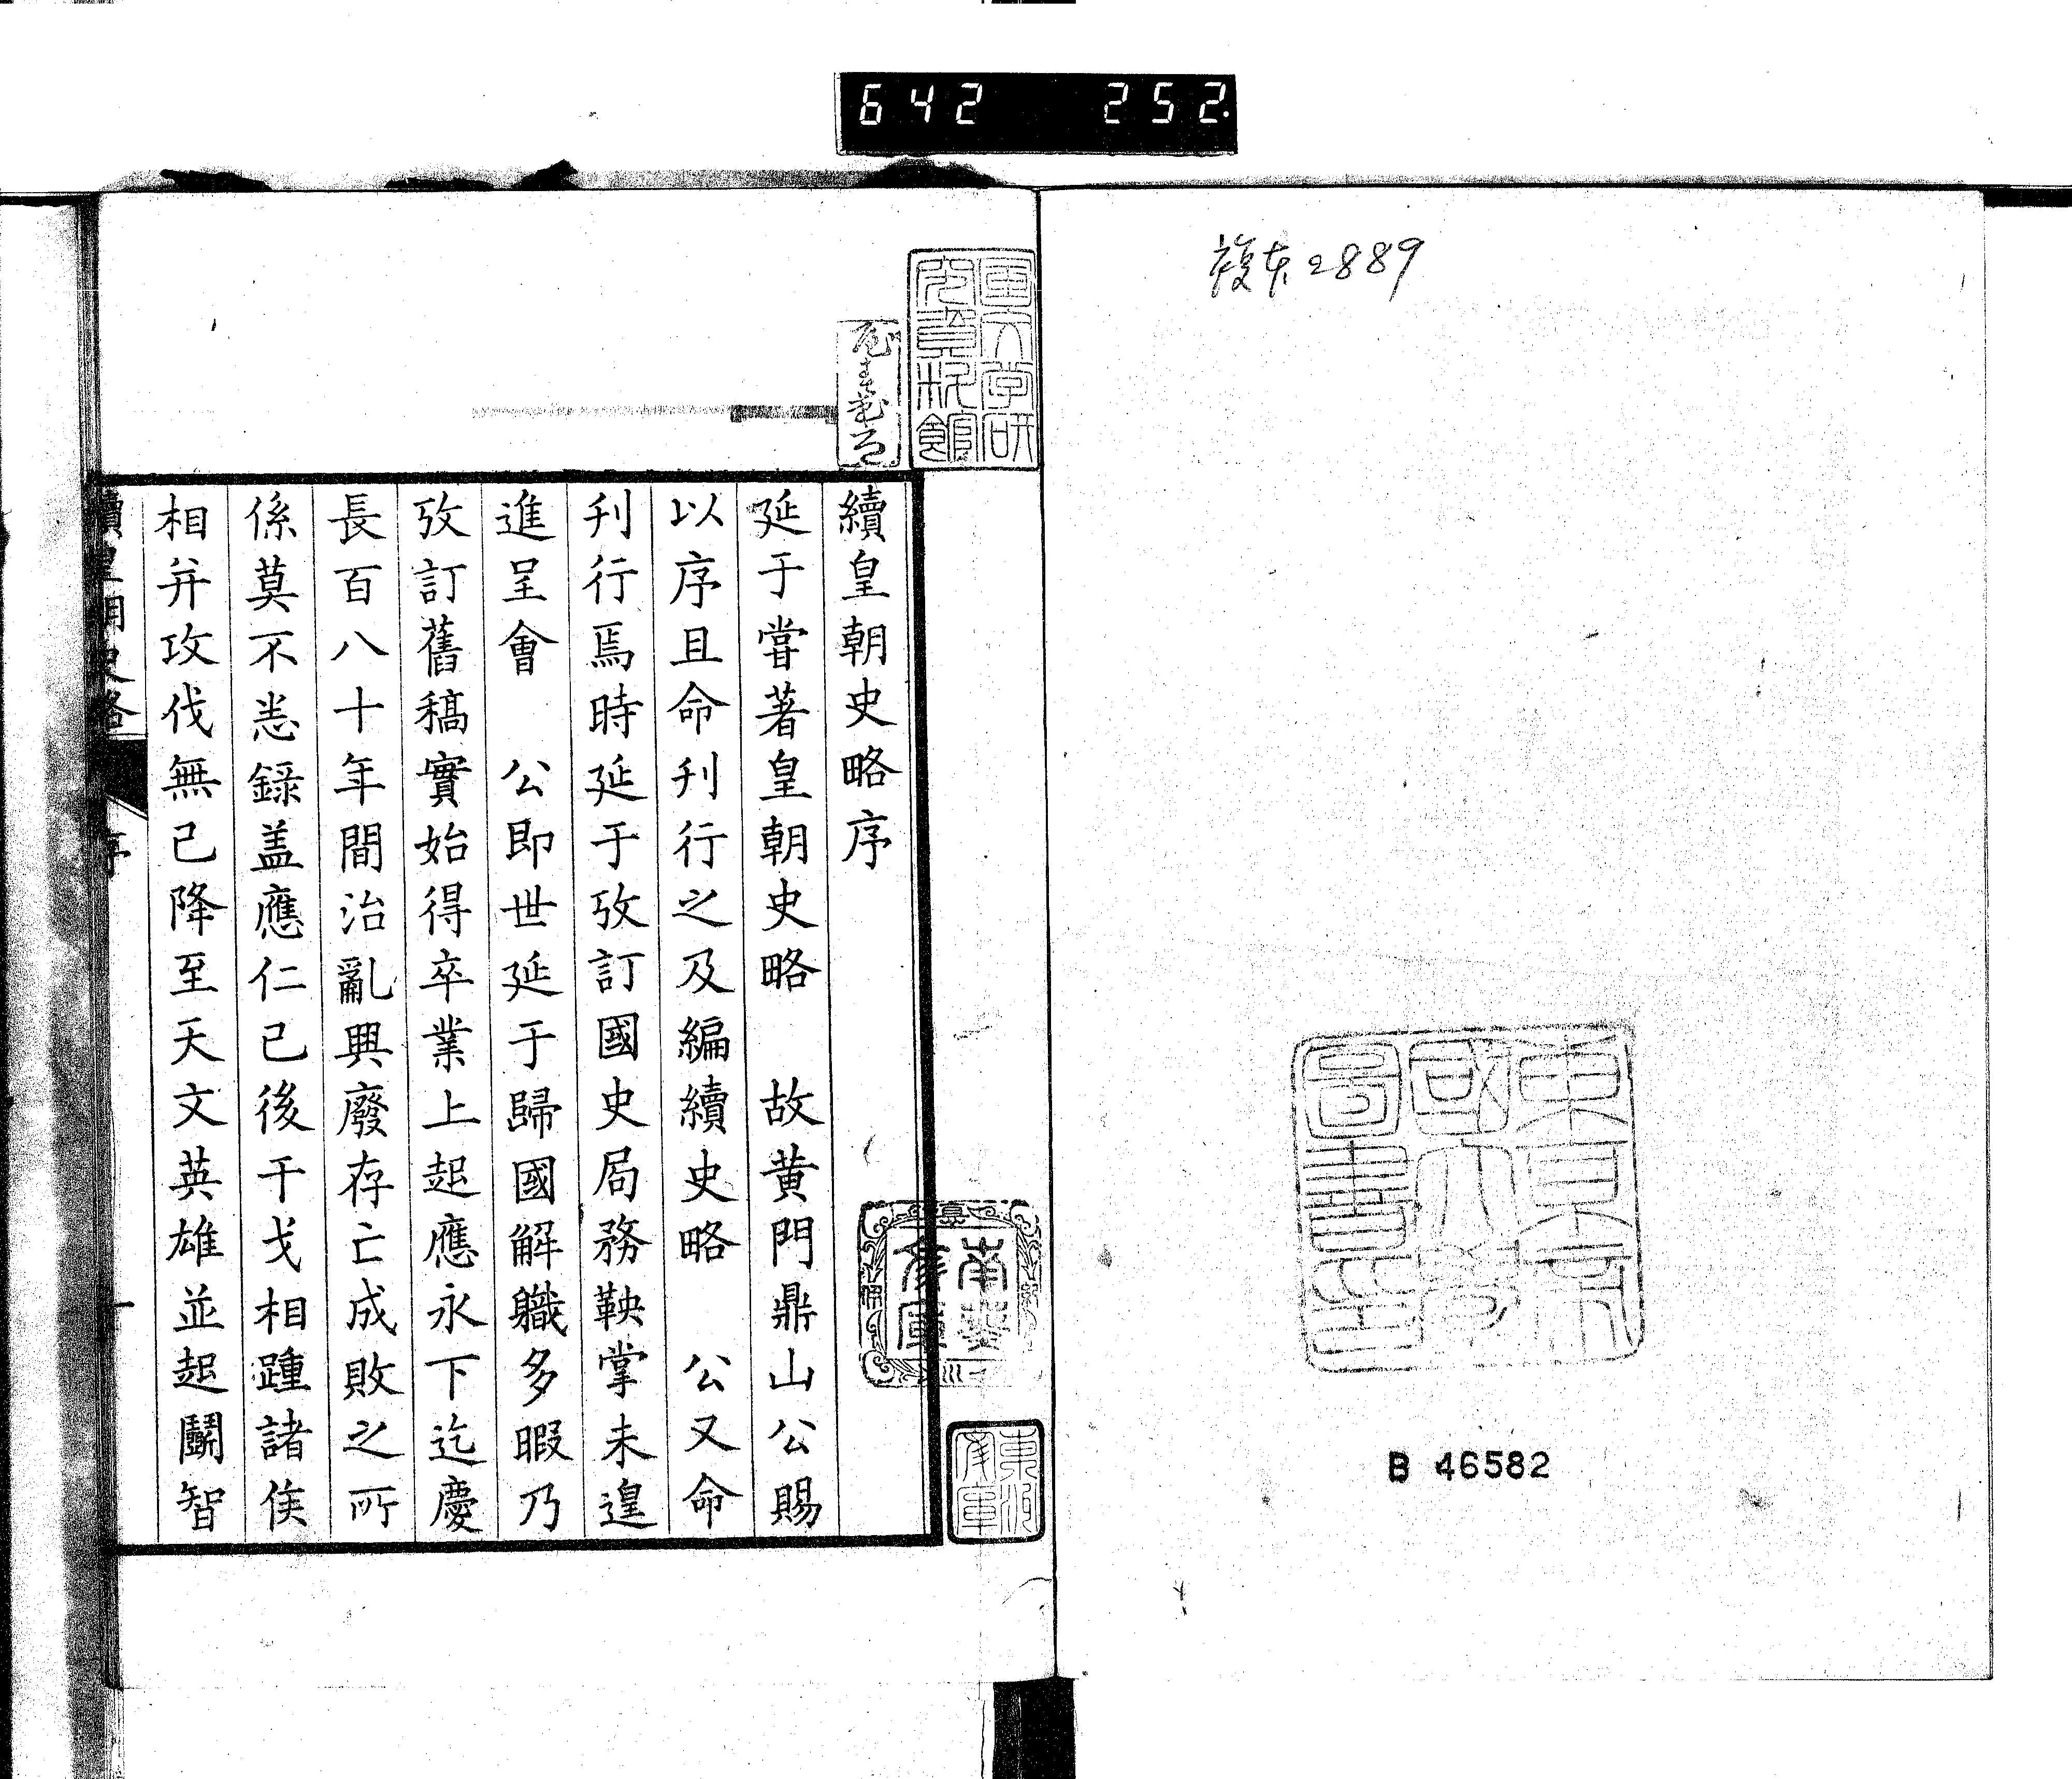 642 252.
複本2889
東京
国文学
図書印
B 46582
国文学研
究資料館
南葵
文庫
續皇朝史略序
延于嘗著皇朝史略　故黄門鼎山公賜
以序且命刋行之及編續史略　公又命
刋行焉時延于攷訂國史局務鞅掌未遑
進呈會　公即世延于歸國解職多暇乃
攷訂舊稿實始得卒業上起應永下迄慶
長百八十年間治亂興廢存亡成敗之所
係莫不悉錄盖應仁已後干戈相踵諸侯
相并攻伐無已降至天文英雄並起鬭智
續皇朝史略
序
一